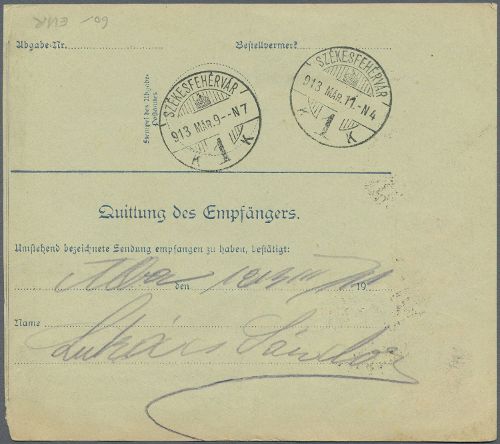 60,- EUR
Abgabe-Nr. Bestellvermerk
SZÉKESFEHÉRVÁR
913 MÁR. 9.--N7
K 1 K
SZÉKESFEHÉRVÁR
913 MÁR. 11.-N4
1 K
Stempel des Abgabe-
Postamtes
Quittung des Empfängers.
Umstehend bezeichnete Sendung empfangen zu haben, bestätigt:
den 19
Name
Lukács Sándor